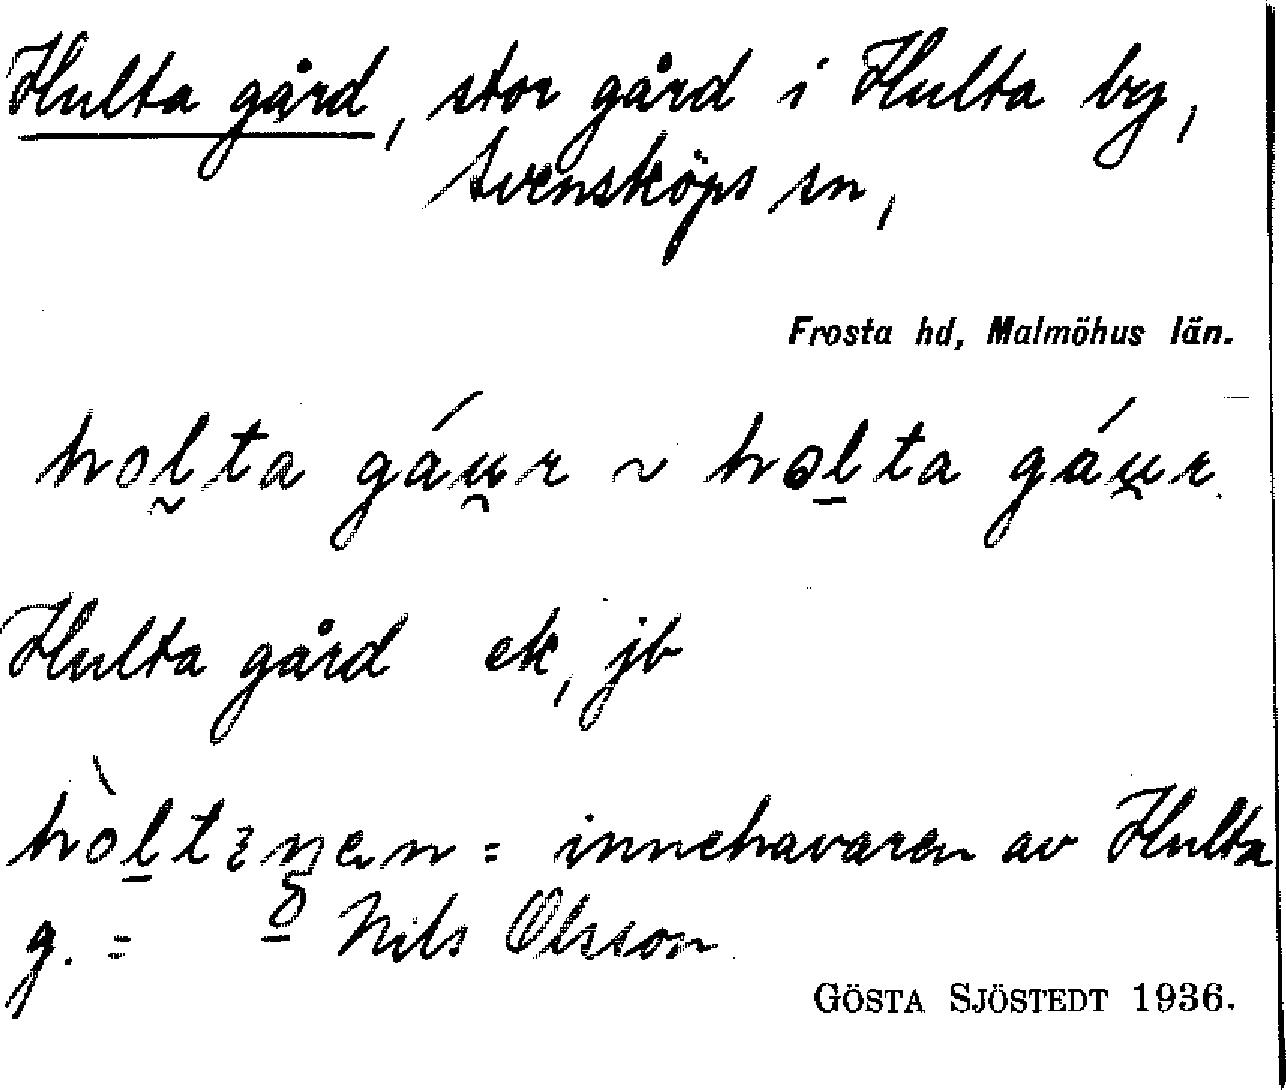 Hulta gård, stor gård i Hulta by,
Svensköps sn,
Frosta hd, Malmöhus län.
hol̰ta gáu̯r ~ hol̲ta gáu̯r.
Hulta gård ek, jb
innehavaren av Hulta
g. = Nils Olsson
GÖSTA SJÖSTEDT 1936.